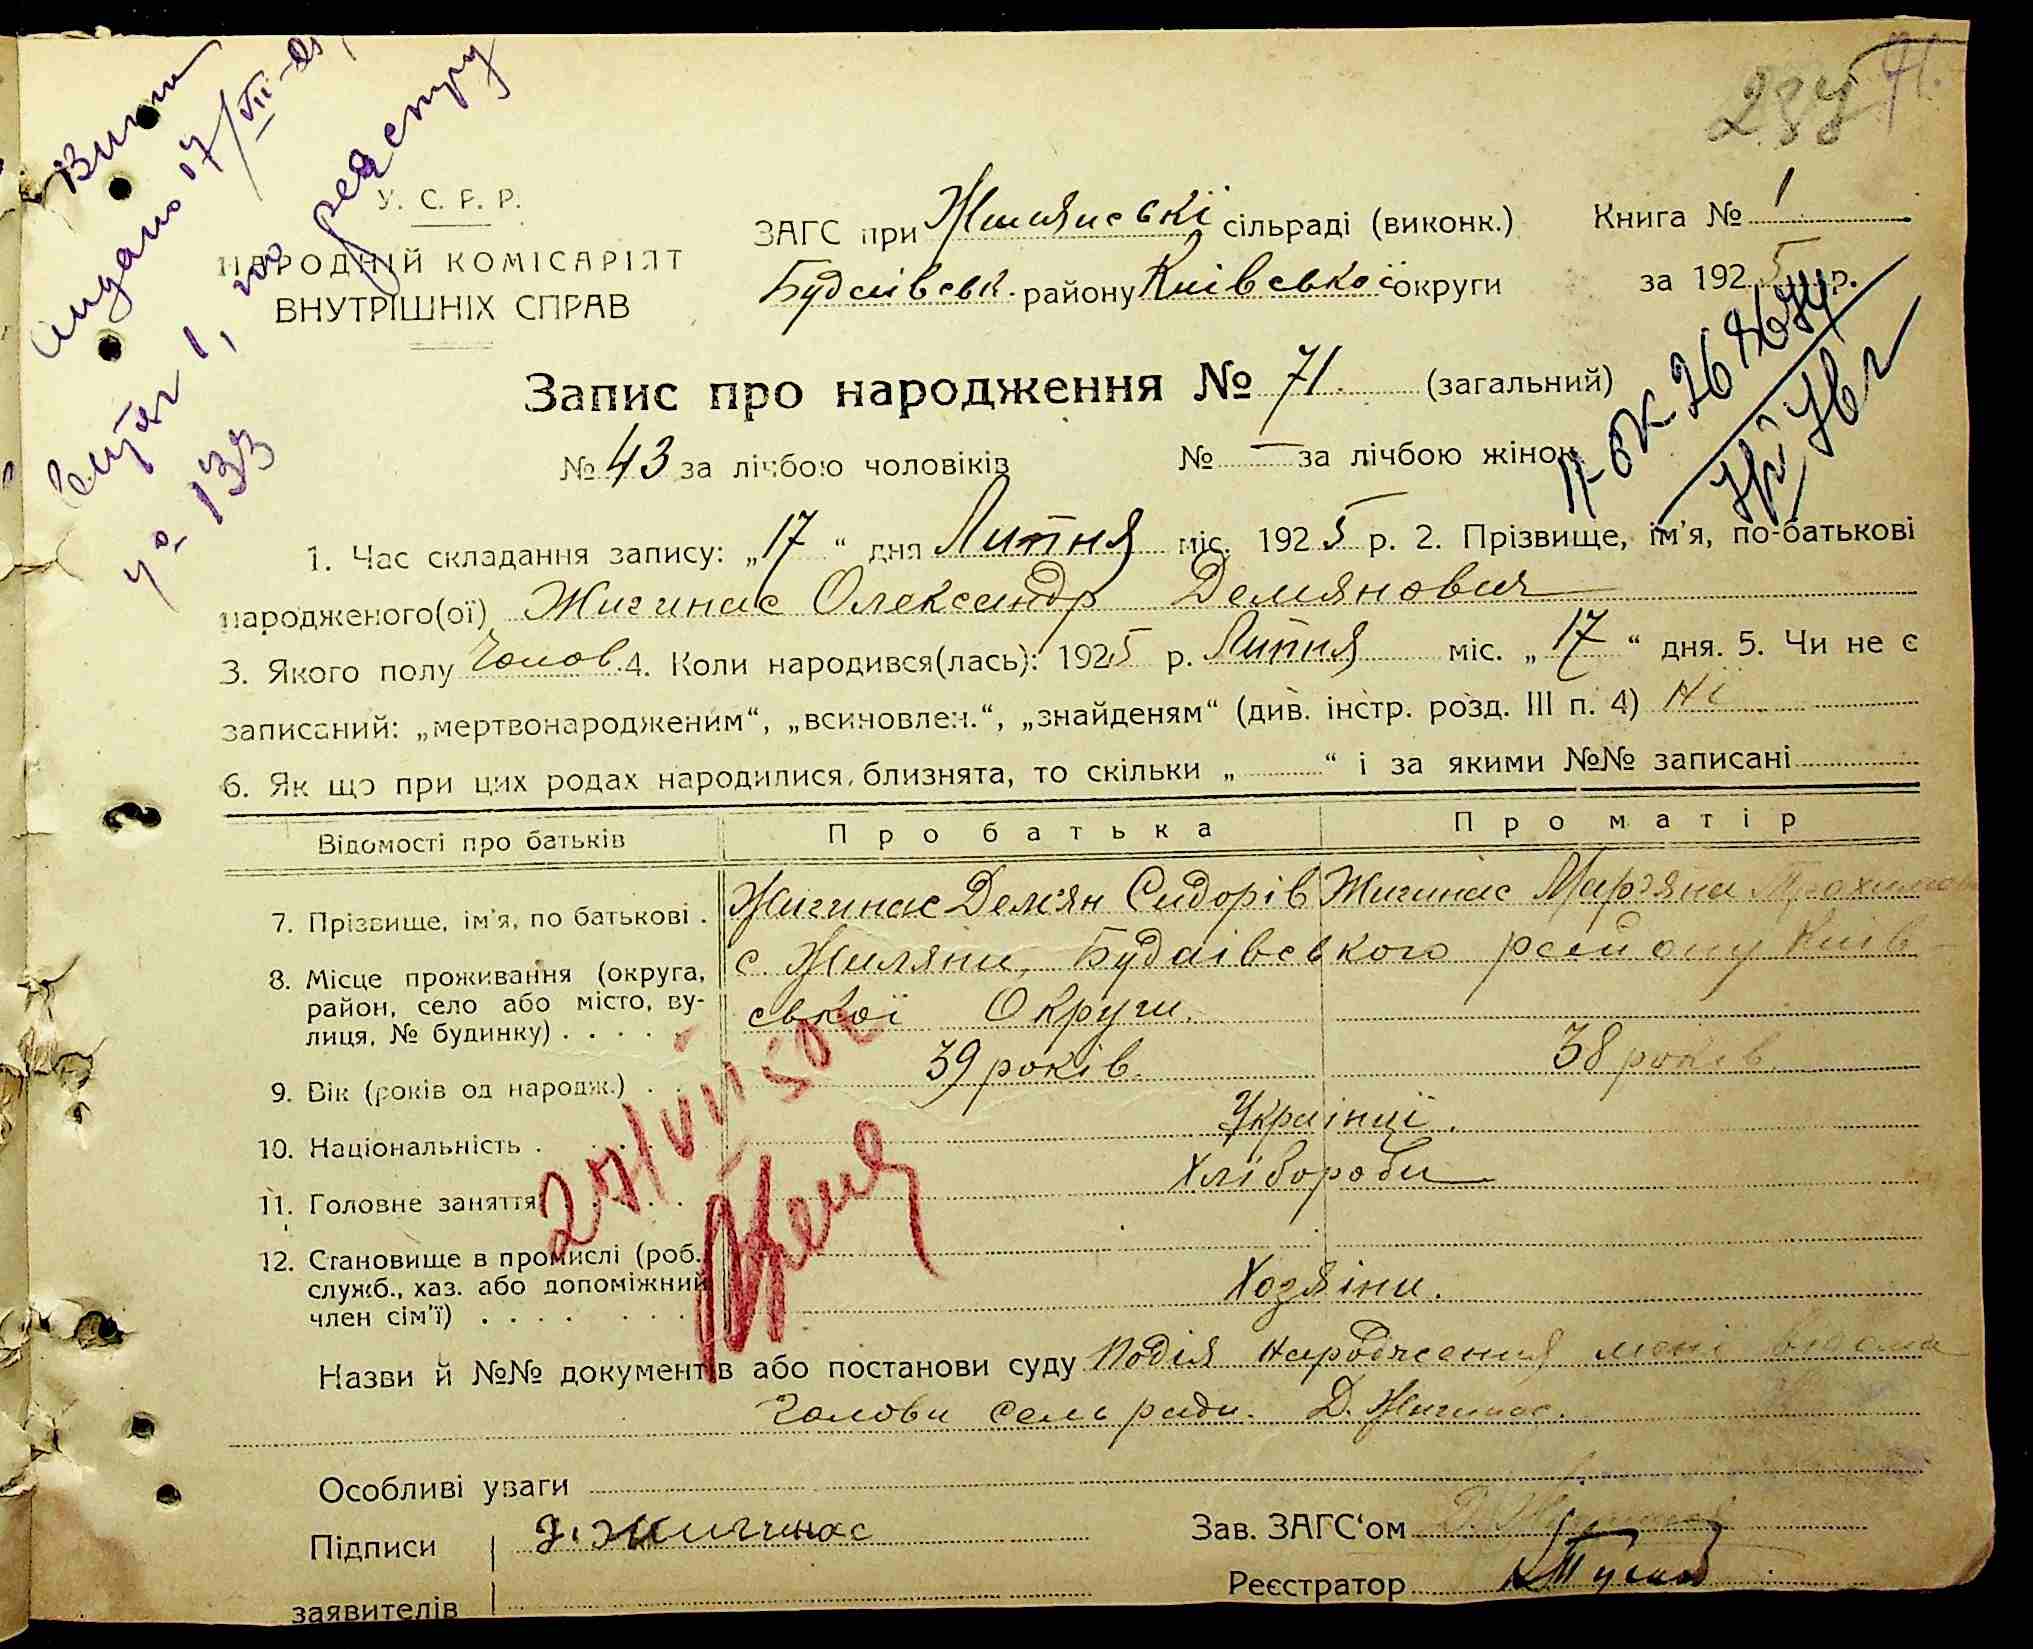 71.
Витяг
видано 17/VII-25
У. С. Р. Р.
НАРОДНІЙ КОМІСАРІЯТ
ВНУТРІШНІХ СПРАВ
по реєстру
№ 133
ЗАГС при Жилянські сільраді (виконк.) Книга № 1
Будаівськ. району Київської округи за 1925 р.
Запис про народження № 71. (загальний)
№ 43 за лічбою чоловіків № — за лічбою жінок
1. Час складання запису: „17“ дня Липня міс. 1925 р. 2. Прізвище, ім’я, по-батькові
народженого(ої) Жигинас Олександр Демянович
3. Якого полу Чолов. 4. Коли народився(лась): 1925 р. Липня міс. „17“ дня. 5. Чи не є
записаний: „мертвонародженим“, „всиновлен.“, „знайденям“ (див. інстр. розд. III п. 4) Ні
6. Як що при цих родах народилися близнята, то скільки „ “ і за якими №№ записані
Відомості про батьків Про батька Про матір
7. Прізвище, ім’я, по батькові . Жигинас Дем’ян Сидорів Жигинас Мар’яна Трохимов
8. Місце проживання (округа, район, село або місто, ву-лиця, № будинку) . . . . . с. Жиляни, Будаівського району Киів-
ської Округи.
9. Вік (років од народж.) . . 39 років. 38 років.
10. Національність . Українці.
11. Головне заняття . . Хлібороби
12. Становище в промислі (роб. служб., хаз. або допоміжний член сім’ї) . . . . Хозяіни.
27/VII
Назви й №№ документів або постанови суду Подія народження мені відома
Голови сельради. Д. Жигинас.
Особливі уваги
Підписи Д. Жигинас Зав. ЗАГС‘ом
заявителів Реєстратор